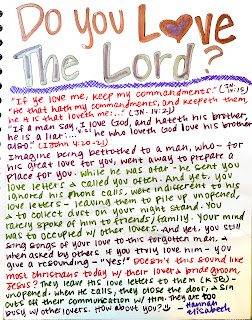 Do you Love
The Lord?
"If ye love me, keep my commandments." (JN. 14:15)
"He that hath my commandments, and keepeth them,
he it is that loveth me:..." (JN. 14:21)
"If a man say, I love God, and hateth his brother,
he is a liar:... he who loveth God love his brother
also." (1 John 4:20-21)
Imagine being betrothed to a man, who - for
his great love for you, went away to prepare a
place for you. While he was afar - he sent you
love letters & called you often. And yet, you
ignored his phone calls, were indifferent to his
love letters - leaving them to pile up unopened,
& to collect dust on your night stand. You
rarely spoke of him to friends/family. Your mind
was occupied w/ other lovers. And yet, you still
sing songs of your love to this forgotten man. &
when asked by others if you truly love him - you
give a resounding - "Yes!" Doesn't this sound like
most christians today w/ their lover & bridegroom,
Jesus? They leave his love letters to them (KJB) -
unopened, & when he calls, they close the door, & sin
cuts off their communication w/ Him. They are too
busy w/ other lovers. How about you? - Hannah
Elisabeth